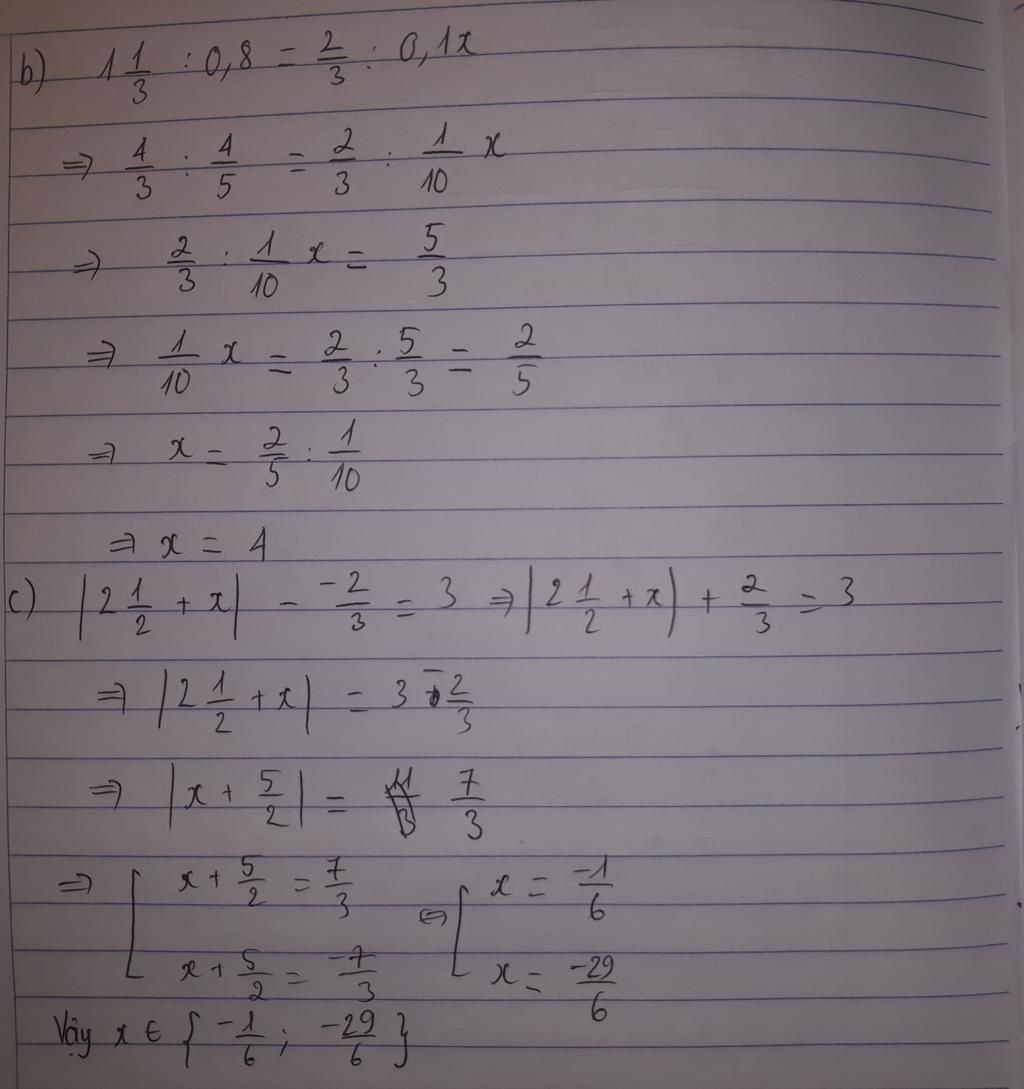 b) 1 1/3 : 0,8 = 2/3 : 0,1x
⇒ 4/3 : 4/5 = 2/3 : 1/10 x
⇒ 2/3 : 1/10 x = 5/3
⇒ 1/10 x = 2/3 : 5/3 = 2/5
⇒ x = 2/5 : 1/10
⇒ x = 4
c) |2 1/2 + x| - -2/3 = 3 ⇒ |2 1/2 + x| + 2/3 = 3
⇒ |2 1/2 + x| = 3 - 2/3
⇒ |x + 5/2| = 7/3
⇒ [ x + 5/2 = 7/3 ⇔ [ x = -1/6
x + 5/2 = -7/3 x = -29/6
Vậy x ∈ { -1/6 ; -29/6 }